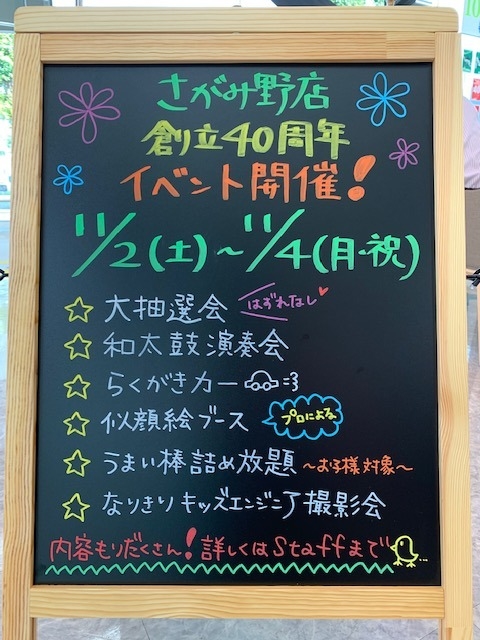 さがみ野店
創立40周年
イベント開催!
11/2(土)~11/4(月・祝)
☆大抽選会 はずれなし
☆和太鼓演奏会
☆らくがきカー
☆似顔絵ブース プロによる
☆うまい棒詰め放題 ~お子様対象~
☆なりきりキッズエンジニア撮影会
内容もりだくさん!詳しくはStaffまで